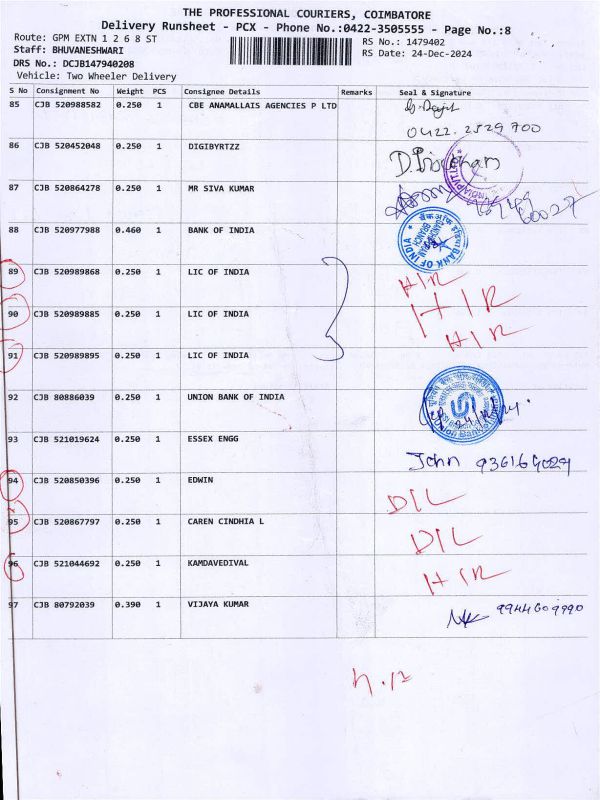 THE PROFESSIONAL COURIERS, COIMBATORE
Delivery Runsheet - PCX - Phone No.:0422-3505555 - Page No.:8
Route: GPM EXTN 1 2 6 8 ST RS No.: 1479402
Staff: BHUVANESHWARI RS Date: 24-Dec-2024
DRS No.: DCJB147940208
Vehicle: Two Wheeler Delivery
S No Consignment No Weight PCS Consignee Details Remarks Seal & Signature
85 CJB 520988582 0.250 1 CBE ANAMALLAIS AGENCIES P LTD
0422.2529700
86 CJB 520452048 0.250 1 DIGIBYRTZZ
87 CJB 520864278 0.250 1 MR SIVA KUMAR
88 CJB 520977988 0.460 1 BANK OF INDIA BANK OF INDIA
89 CJB 520989868 0.250 1 LIC OF INDIA HIR
90 CJB 520989885 0.250 1 LIC OF INDIA HIR
91 CJB 520989895 0.250 1 LIC OF INDIA HIR
92 CJB 80886039 0.250 1 UNION BANK OF INDIA 24/12/24.
93 CJB 521019624 0.250 1 ESSEX ENGG John
94 CJB 520850396 0.250 1 EDWIN DIL
95 CJB 520867797 0.250 1 CAREN CINDHIA L DIL
96 CJB 521044692 0.250 1 KAMDAVEDIVAL HIR
97 CJB 80792039 0.390 1 VIJAYA KUMAR 9944609990